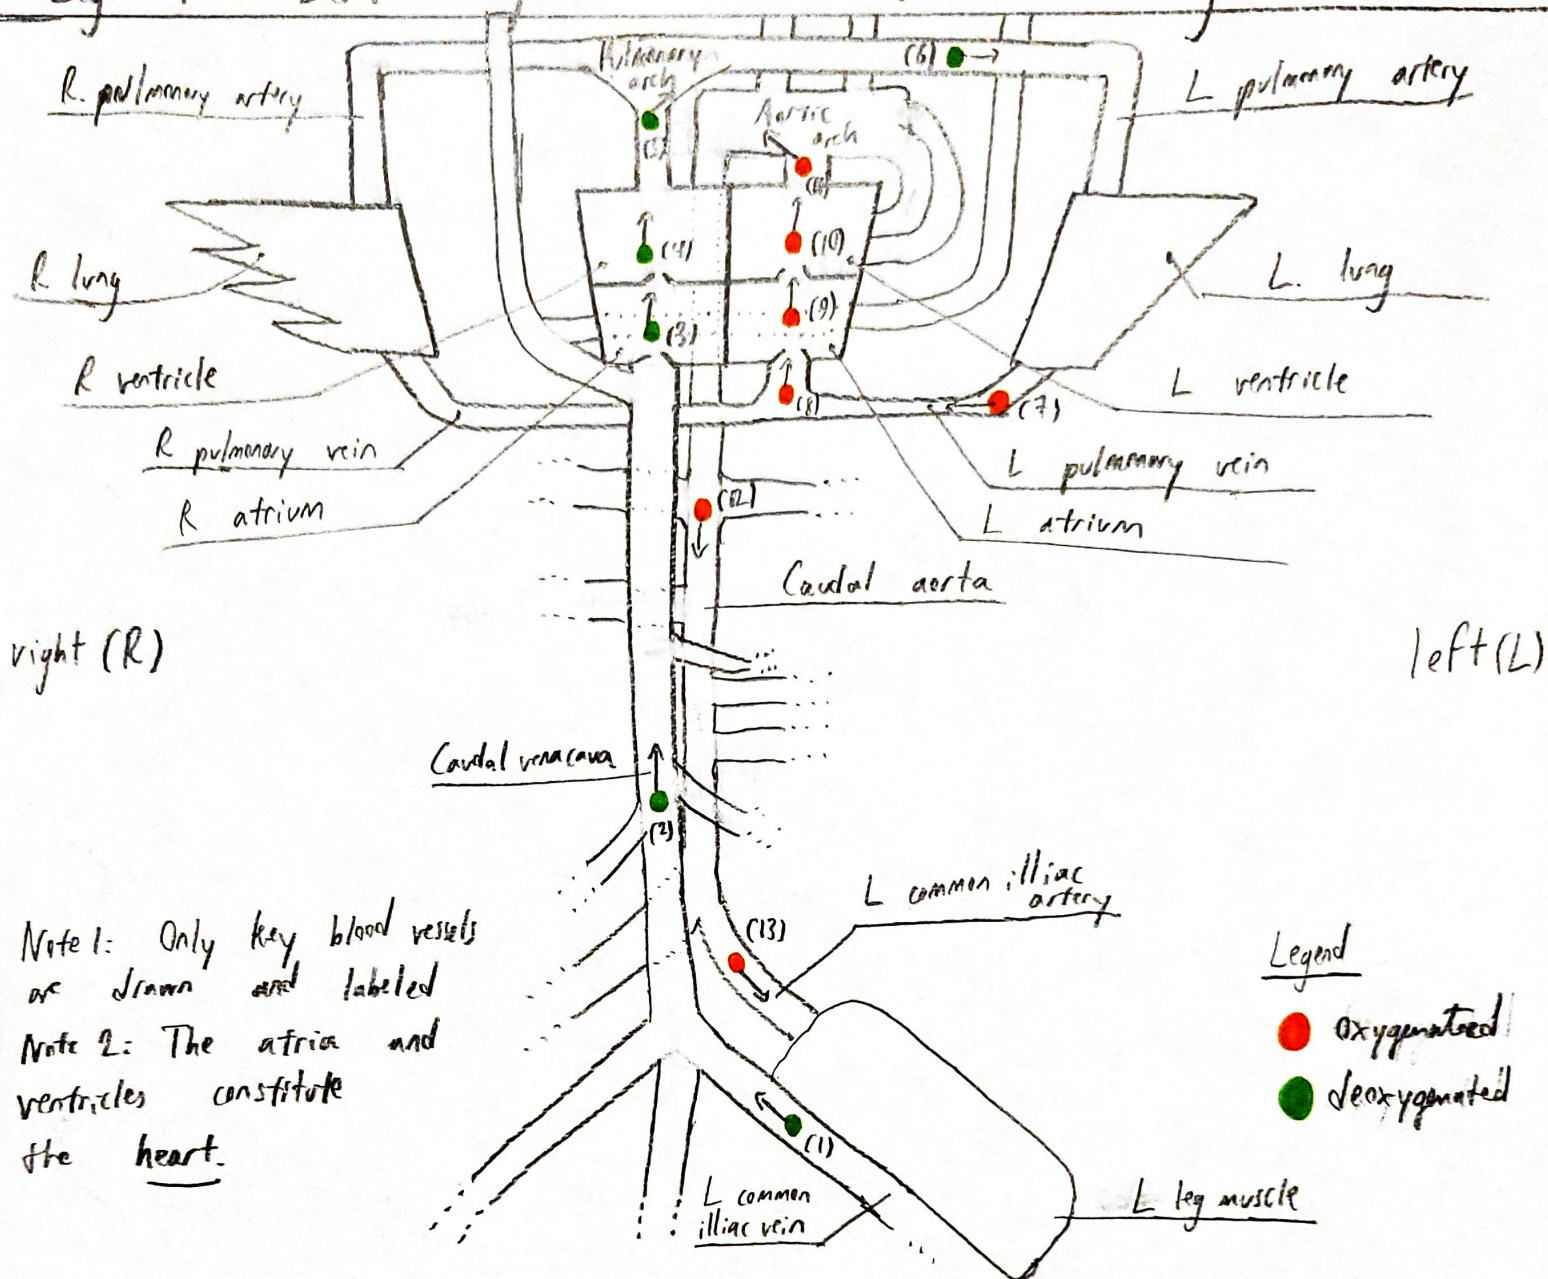 Pulmonary
arch
(6)
R. pulmonary artery
L pulmonary artery
(5)
Aortic
arch
(11)
(4)
(10)
R lung
L. lung
(3)
(9)
R ventricle
L ventricle
(8)
(7)
R pulmonary vein
L pulmonary vein
R atrium
L atrium
(12)
Caudal aorta
right (R)
left (L)
Caudal venacava
(2)
L common illiac
artery
(13)
Note 1: Only key blood vessels
are drawn and labeled
Note 2: The atria and
ventricles constitute
the heart.
Legend
oxygenateed
deoxygenated
(1)
L common
illiac vein
L leg muscle